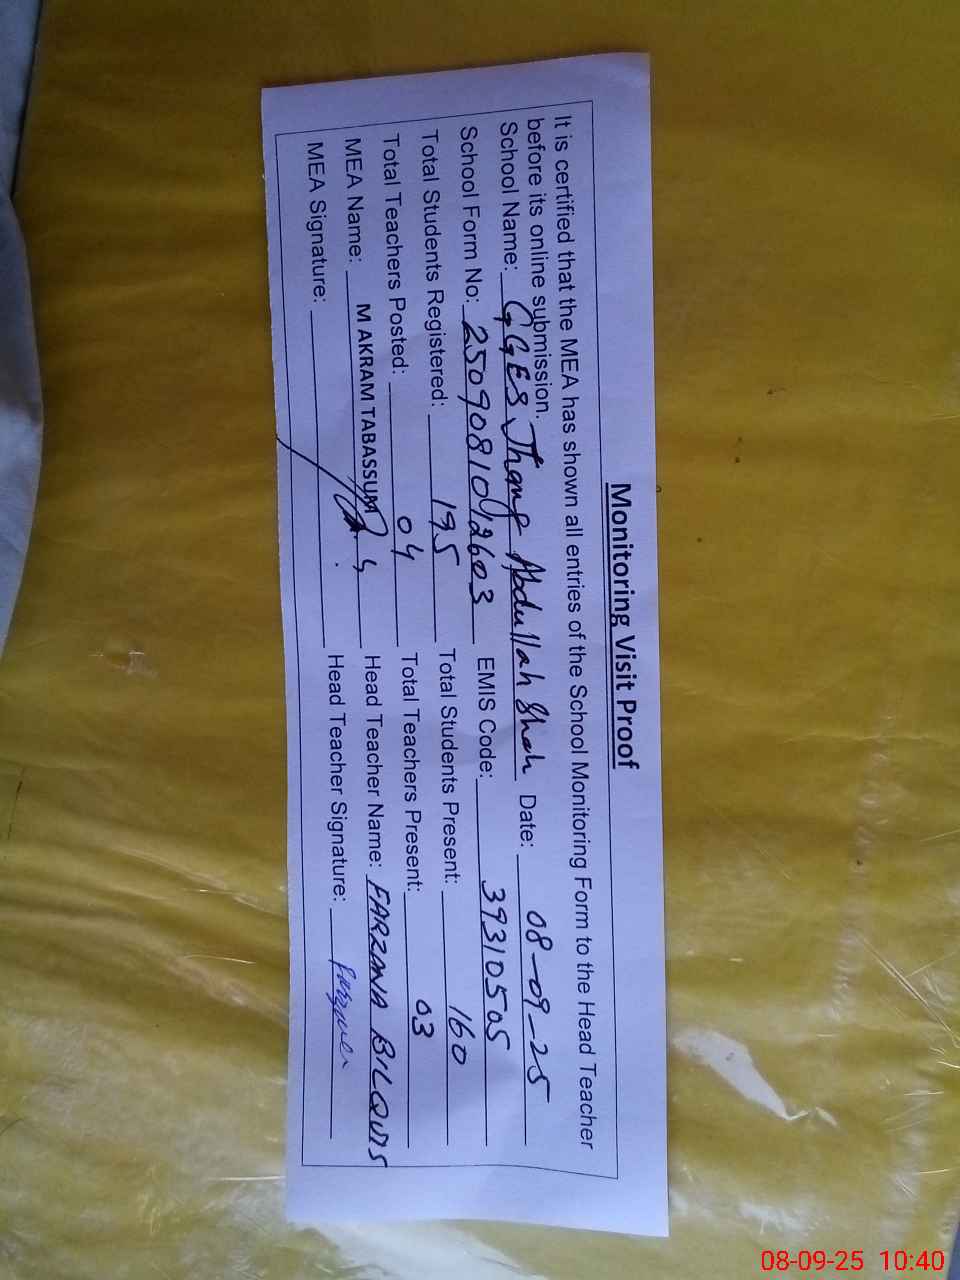 Monitoring Visit Proof
It is certified that the MEA has shown all entries of the School Monitoring Form to the Head Teacher
before its online submission.
School Name: GGES Jhang Abdullah Shah Date: 08-09-25
School Form No: 2509081012603 EMIS Code: 39310505
Total Students Registered: 195 Total Students Present: 160
Total Teachers Posted: 04 Total Teachers Present: 03
MEA Name: M AKRAM TABASSUM Head Teacher Name: FARZANA BILQUIS
MEA Signature: Head Teacher Signature: Farzana
08-09-25 10:40